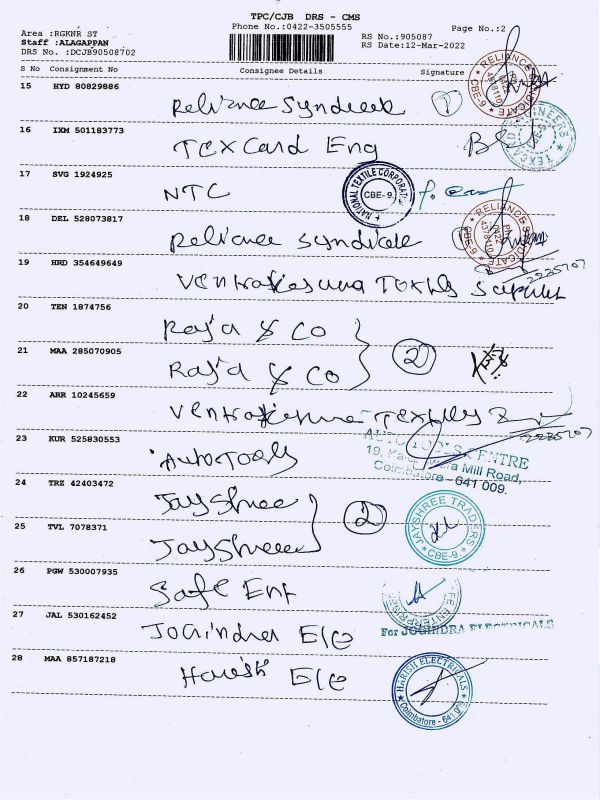 TPC/CJB DRS - CMS
Phone No.:0422-3505555
Area :RGKNR ST
Staff :ALAGAPPAN
DRS No. :DCJB90508702
RS No.:905087
RS Date:12-Mar-2022
Page No.:2
S No Consignment No Consignee Details Signature
15 HYD 80829886
Reliance Syndicate 1
RELIANCE SYNDICATE CBE-6
16 IXM 501183773
Texcard Eng
17 SVG 1924925
NTC
NATIONAL TEXTILE CORPORATION CBE-9
18 DEL 528073817
Reliance Syndicate 1
RELIANCE SYNDICATE CBE-6
19 HRD 354649649
2225707
20 TEN 1874756
Raja & Co
21 MAA 285070905
Raja & Co 2
22 ARR 10245659
2225707
23 KUR 525830553
Auto Tools
AUTO TOOLS CENTRE
Mill Road,
Coimbatore - 641 009.
24 TRZ 42403472
Jayshree
25 TVL 7078371
Jayshree 2
JAYSHREE TRADERS CBE-9
26 PGW 530007935
Safe Ent
27 JAL 530162452
Jogindra Ele
For JOGINDRA ELECTRICALS
28 MAA 857187218
Harish Ele
HARISH ELECTRICALS
Coimbatore - 641 009